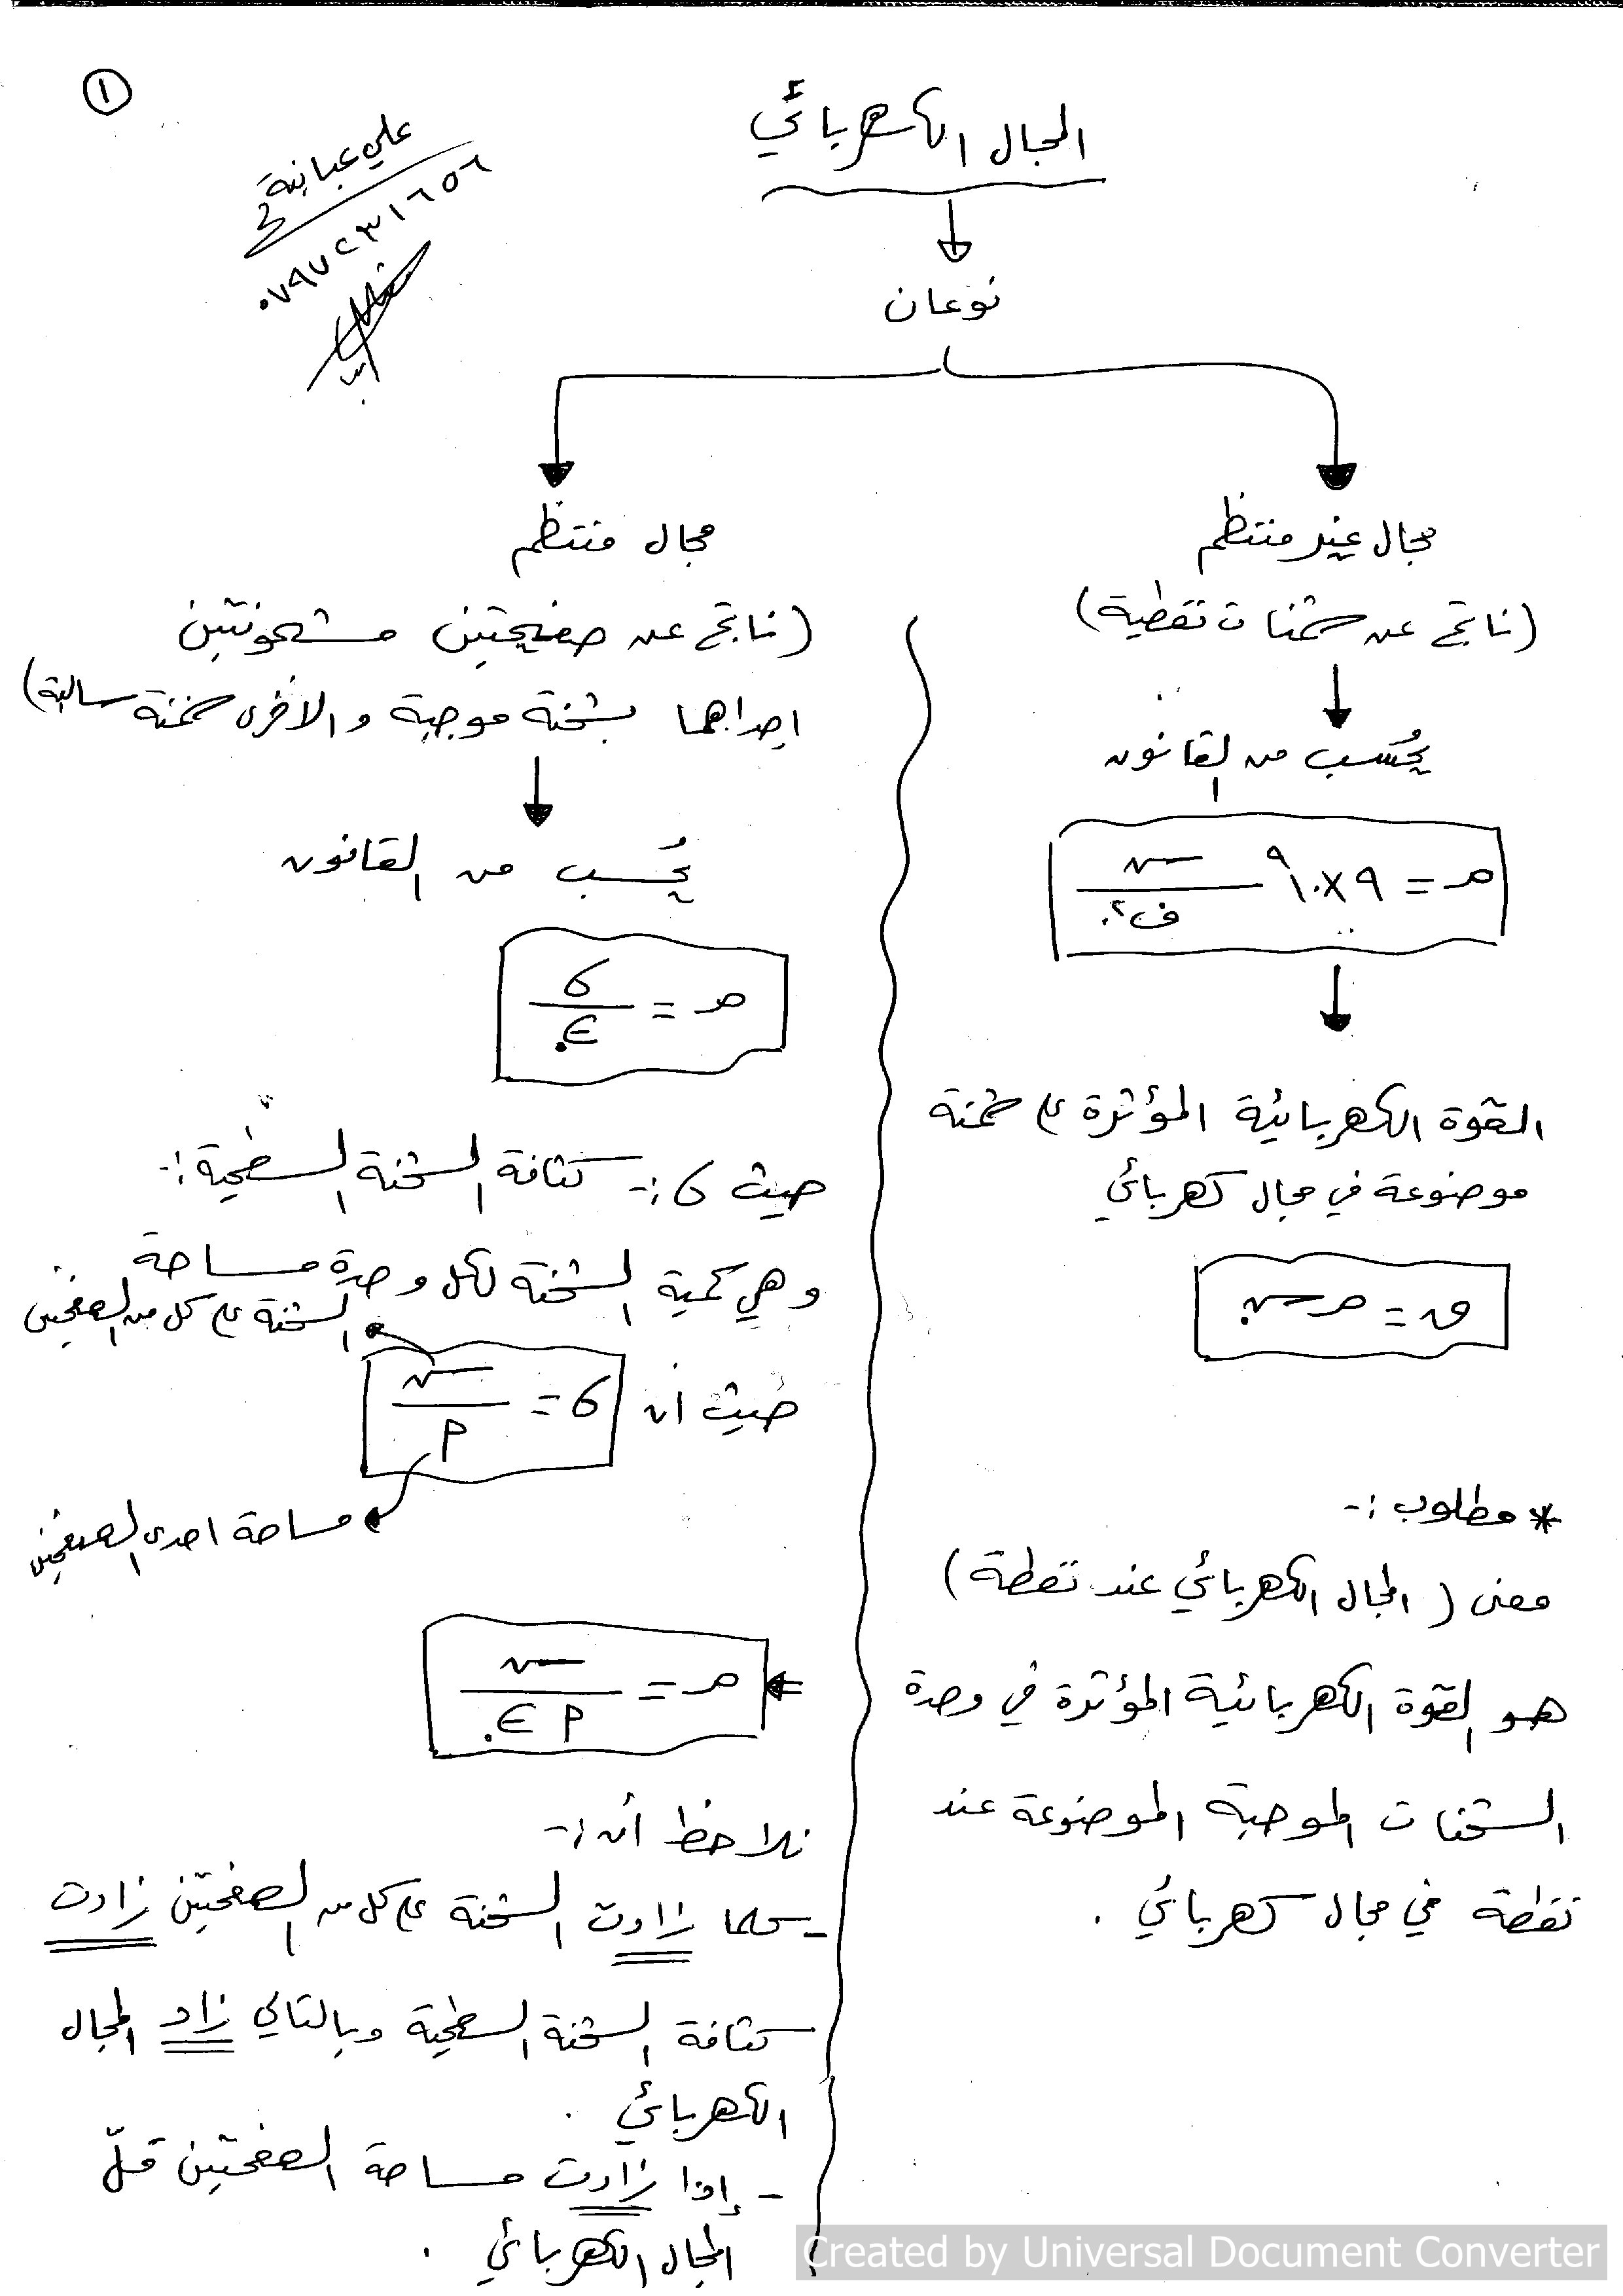 ١
علي عبابنة
٠٧٩٧٢٣١٦٥٦
المجال الكهربائي
نوعان
مجال غير منتظم
(ناتج عن شحنات نقطية)
يُحسب من القانون
مـ = ٩×١٠^٩ سـ / ف٢
القوة الكهربائية المؤثرة على شحنة
موضوعة في مجال كهربائي
ق = مـ سـ.
* مطلوب :-
معنى (المجال الكهربائي عند نقطة)
هو القوة الكهربائية المؤثرة في وحدة
الشحنات الموجبة الموضوعة عند
نقطة في مجال كهربائي .
مجال منتظم
(ناتج عن صفيحتين مشحونتين
احداهما بشحنة موجبة والأخرى شحنة سالبة)
يُحسب من القانون
مـ = σ / ε.
حيث σ :- كثافة الشحنة السطحية :-
وهي كمية الشحنة لكل وحدة مساحة
الشحنة على كل من الصفيحتين
حيث أن σ = سـ / أ
مساحة احدى الصفيحتين
⇐ مـ = سـ / أ ε.
نلاحظ أن :-
- كلما زادت الشحنة على كل من الصفيحتين زادت
كثافة الشحنة السطحية وبالتالي زاد المجال
الكهربائي .
- إذا زادت مساحة الصفيحتين قلّ
المجال الكهربائي .
Created by Universal Document Converter